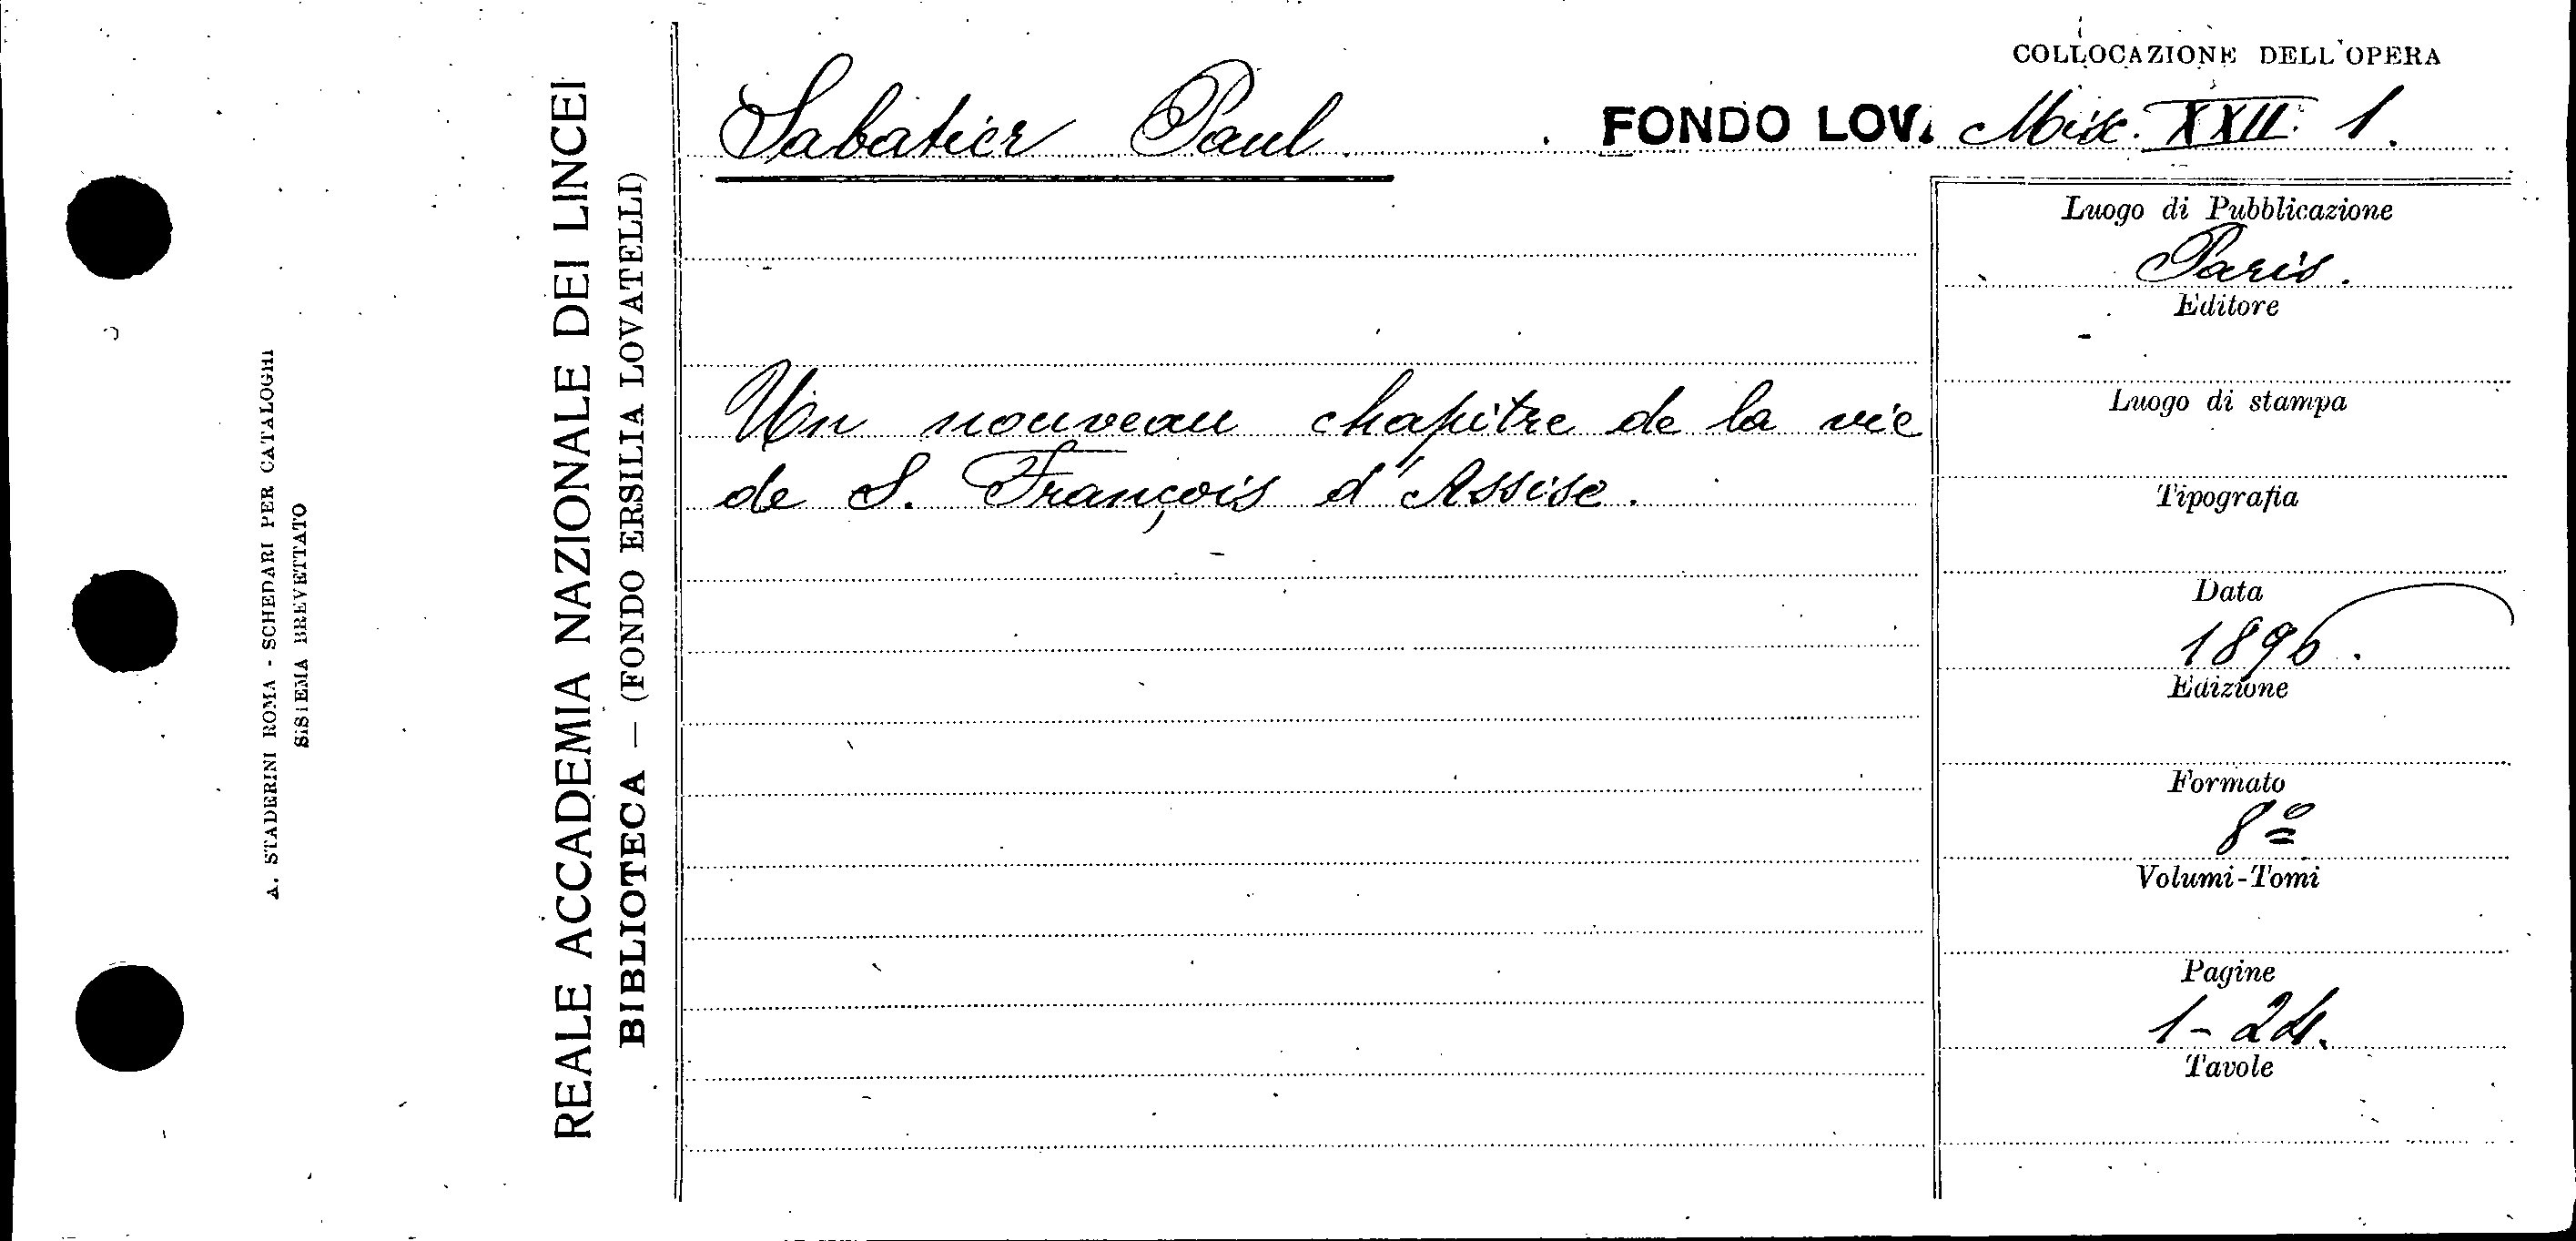 A. STADERINI ROMA - SCHEDARI PER CATALOGHI
SISTEMA BREVETTATO
REALE ACCADEMIA NAZIONALE DEI LINCEI
BIBLIOTECA — (FONDO ERSILIA LOVATELLI)
COLLOCAZIONE DELL'OPERA
Sabatier Paul. FONDO LOV. Misc. XXII. 1.
Luogo di Pubblicazione
Paris.
Editore
Un nouveau chapitre de la vie
de S. François d'Assise.
Luogo di stampa
Tipografia
Data
1896.
Edizione
Formato
8º
Volumi-Tomi
Pagine
1-24.
Tavole